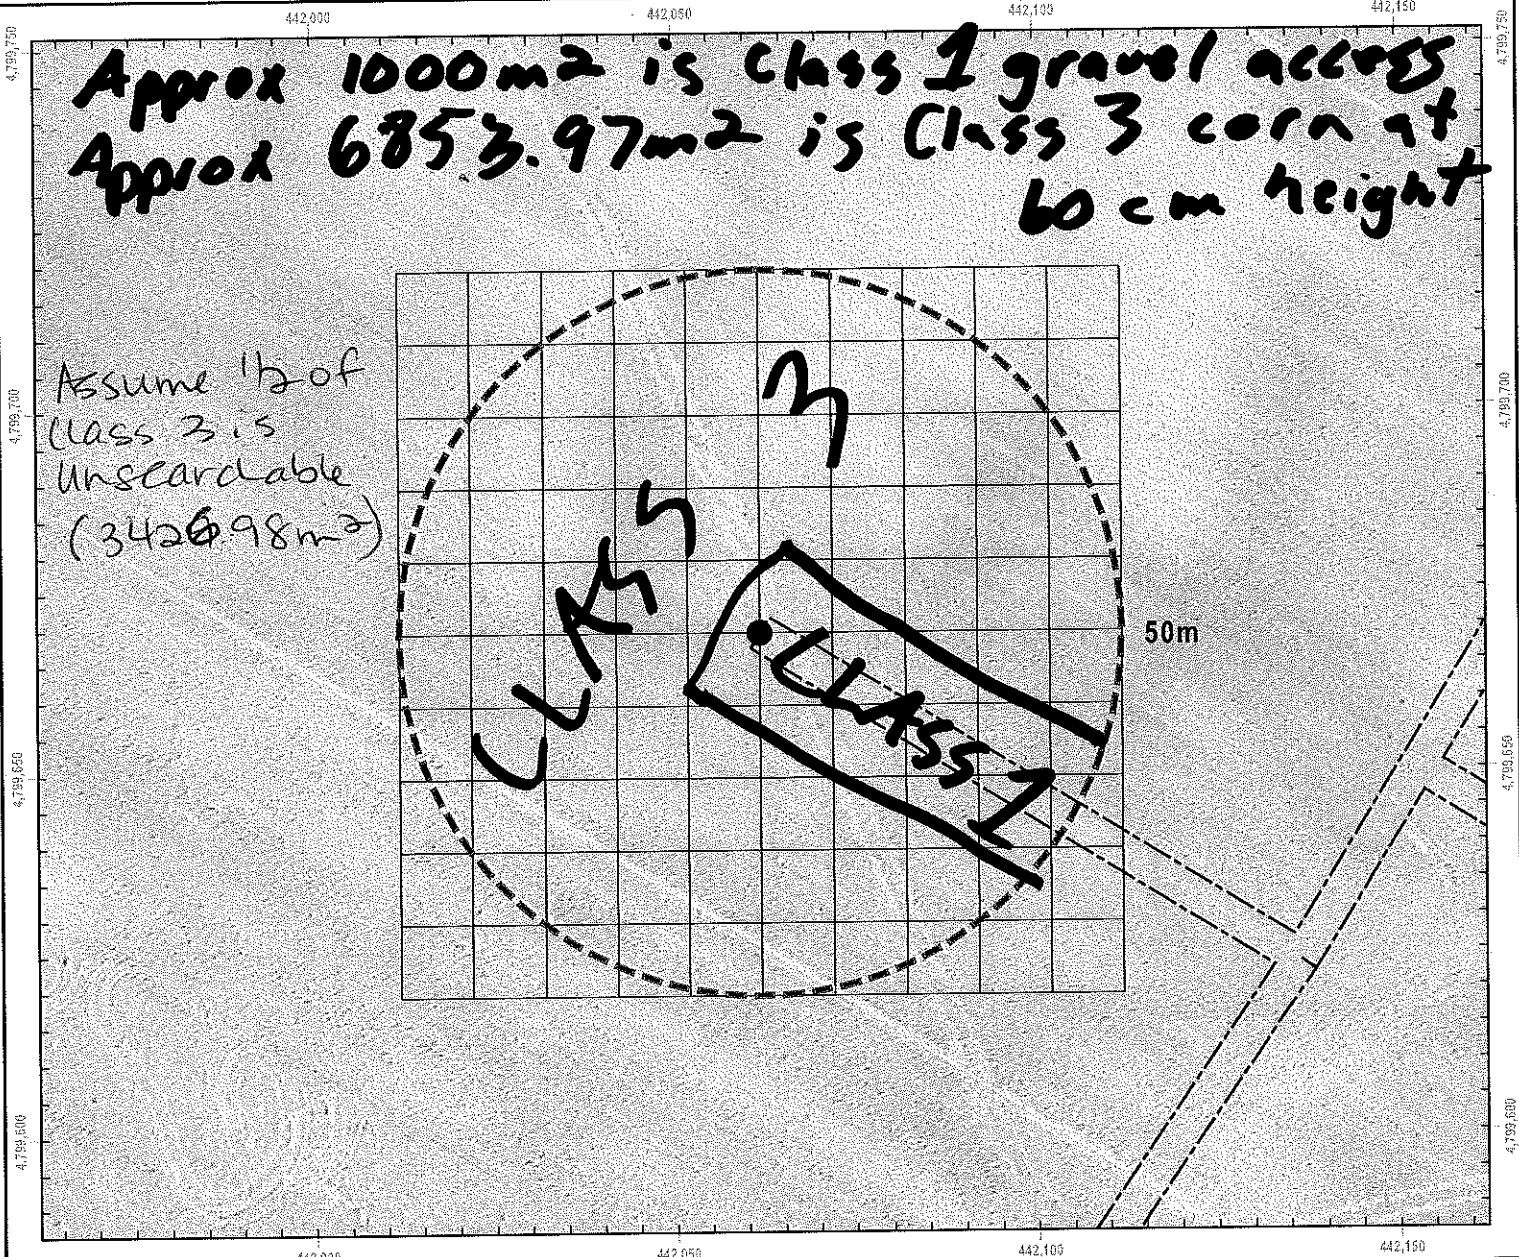 442,000 442,050 442,100 442,150
4,799,750 4,799,750
Approx 1000m2 is Class 1 gravel access
Approx 6853.97m2 is Class 3 corn at
60 cm height
Assume 1/2 of
Class 3 is
Unseardable
(3426.98m2)
4,799,700 4,799,700
CLASS 3
CLASS 1
50m
4,799,650 4,799,650
4,799,600 4,799,600
442,000 442,050 442,100 442,150